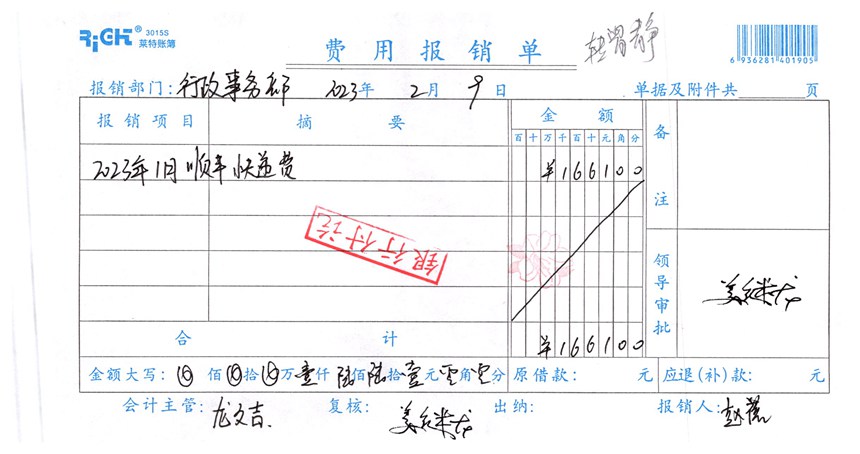 RiCHT® 3015S
莱特账簿
费用报销单
6 936281 401905
报销部门: 行政事务部 2023年 2月 9日 单据及附件共 页
报销项目 摘要 金额 备注
百十万千百十元角分
2023年1月顺丰快递费 ¥166100
银行付讫
领导审批
合计 ¥166100
金额大写: 佰 拾 万壹仟陆佰陆拾壹元零角零分 原借款: 元 应退(补)款: 元
会计主管: 龙文吉 复核: 出纳: 报销人: